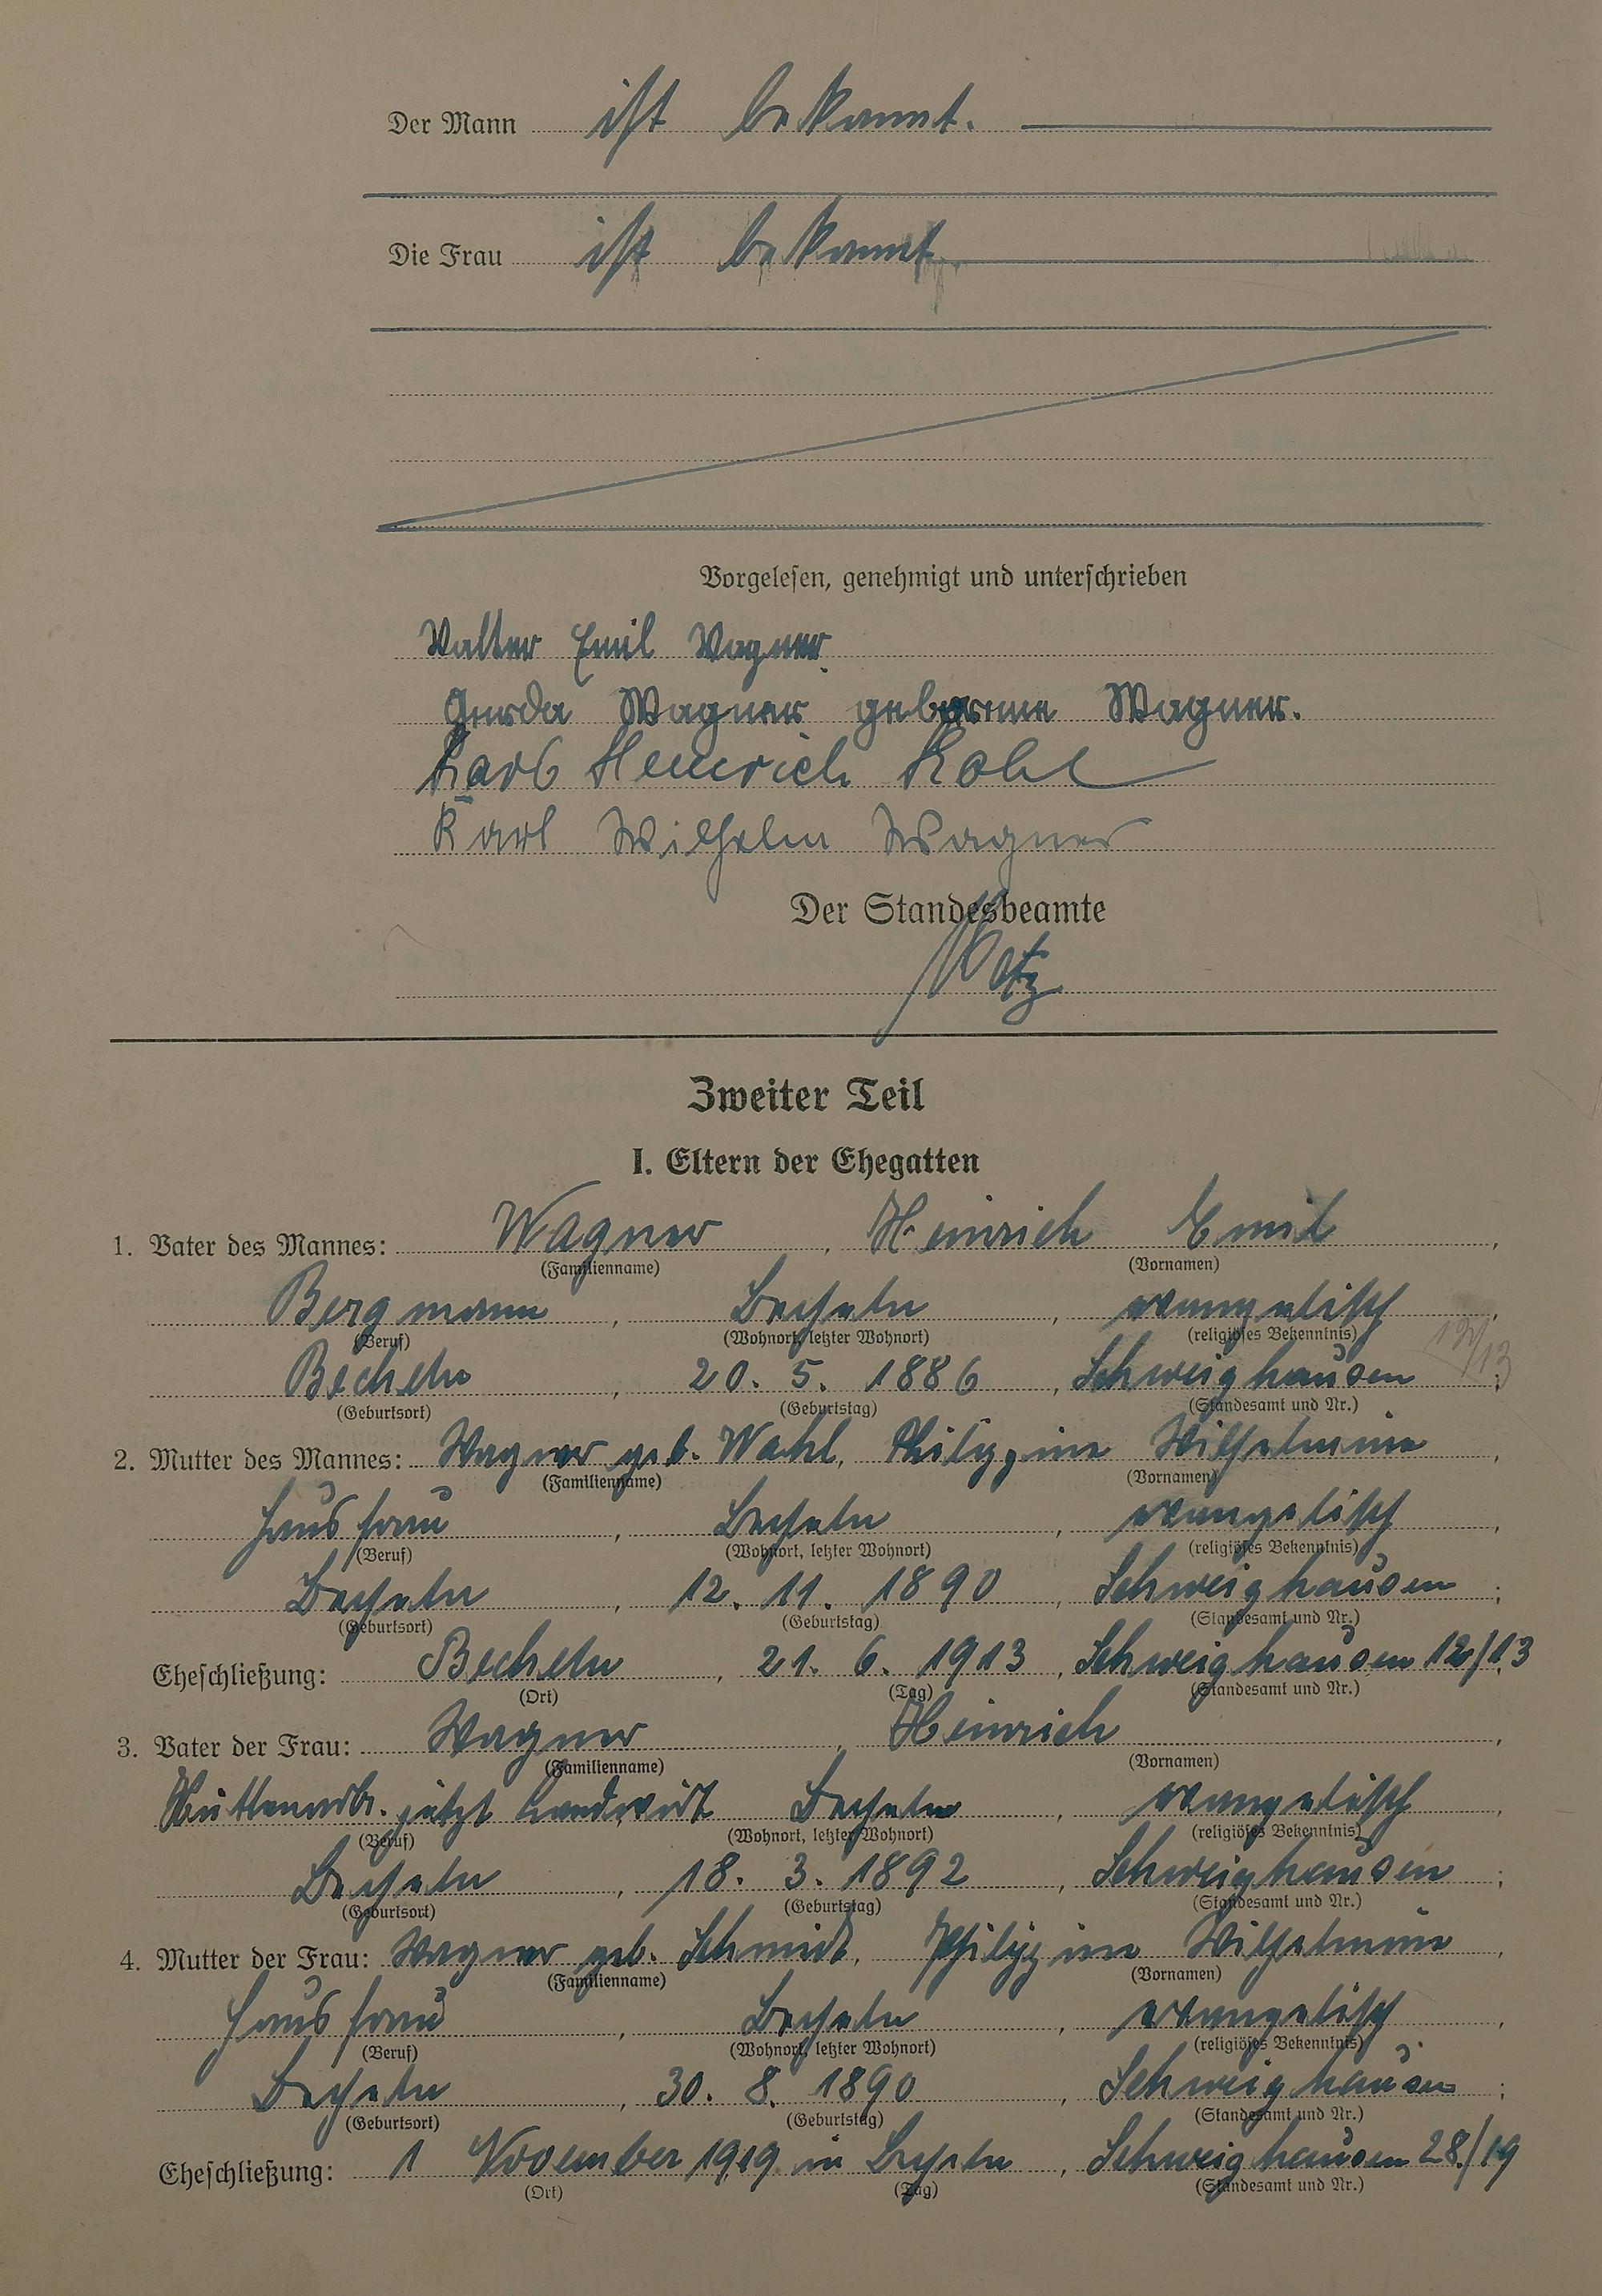 Der Mann ist bekannt.
Die Frau ist bekannt.
Vorgelesen, genehmigt und unterschrieben
Walter Emil Wagner
Gerda Wagner geborene Wagner.
Karl Heinrich Kohl
Karl Wilhelm Wagner
Der Standesbeamte
Zweiter Teil
I. Eltern der Ehegatten
1. Vater des Mannes: Wagner, Heinrich Emil,
(Familienname) (Vornamen)
Bergmann, Becheln, evangelisch,
(Beruf) (Wohnort, letzter Wohnort) (religiöses Bekenntnis)
12/13
Becheln, 20. 5. 1886, Schweighausen;
(Geburtsort) (Geburtstag) (Standesamt und Nr.)
2. Mutter des Mannes: Wagner geb. Wahl, Philippine Wilhelmine,
(Familienname) (Vornamen)
Hausfrau, Becheln, evangelisch,
(Beruf) (Wohnort, letzter Wohnort) (religiöses Bekenntnis)
Becheln, 12. 11. 1890, Schweighausen;
(Geburtsort) (Geburtstag) (Standesamt und Nr.)
Eheschließung: Becheln, 21. 6. 1913, Schweighausen 12/13
(Ort) (Tag) (Standesamt und Nr.)
3. Vater der Frau: Wagner, Heinrich,
(Familienname) (Vornamen)
Hüttenarb. jetzt Landwirt Becheln, evangelisch,
(Beruf) (Wohnort, letzter Wohnort) (religiöses Bekenntnis)
Becheln, 18. 3. 1892, Schweighausen;
(Geburtsort) (Geburtstag) (Standesamt und Nr.)
4. Mutter der Frau: Wagner geb. Schmidt, Philippine Wilhelmine,
(Familienname) (Vornamen)
Hausfrau, Becheln, evangelisch,
(Beruf) (Wohnort, letzter Wohnort) (religiöses Bekenntnis)
Becheln, 30. 8. 1890, Schweighausen;
(Geburtsort) (Geburtstag) (Standesamt und Nr.)
Eheschließung: 1 November 1919 in Becheln, Schweighausen 28./19
(Ort) (Tag) (Standesamt und Nr.)